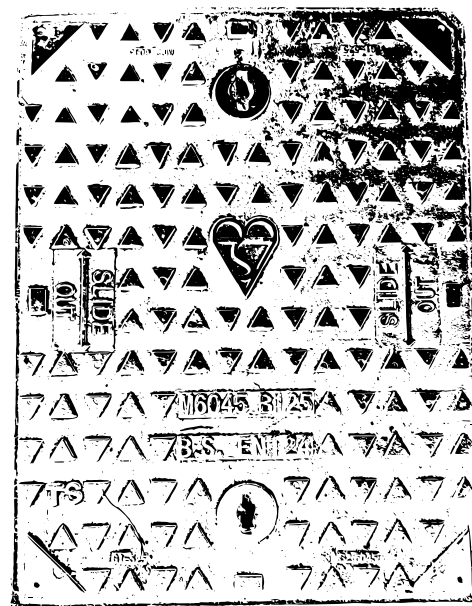 SLIDE
OUT
SLIDE
OUT
M6045 B125
B.S. EN124
TS